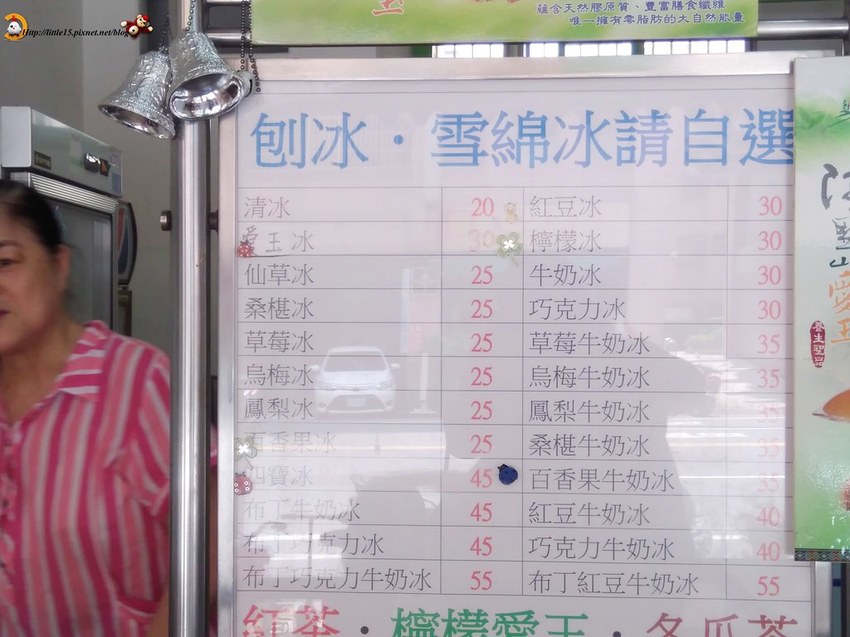 Http://little15.pixnet.net/blog
蘊含天然膠原質、豐富膳食纖維
唯一擁有零脂肪的大自然能量
刨冰·雪綿冰請自選
清冰 20 紅豆冰 30
愛玉冰 30 檸檬冰 30
仙草冰 25 牛奶冰 30
桑椹冰 25 巧克力冰 30
草莓冰 25 草莓牛奶冰 35
烏梅冰 25 烏梅牛奶冰 35
鳳梨冰 25 鳳梨牛奶冰 35
百香果冰 25 桑椹牛奶冰 35
四寶冰 45 百香果牛奶冰 35
布丁牛奶冰 45 紅豆牛奶冰 40
布丁巧克力冰 45 巧克力牛奶冰 40
布丁巧克力牛奶冰 55 布丁紅豆牛奶冰 55
紅茶·檸檬愛玉·冬瓜茶
愛玉
養生聖品